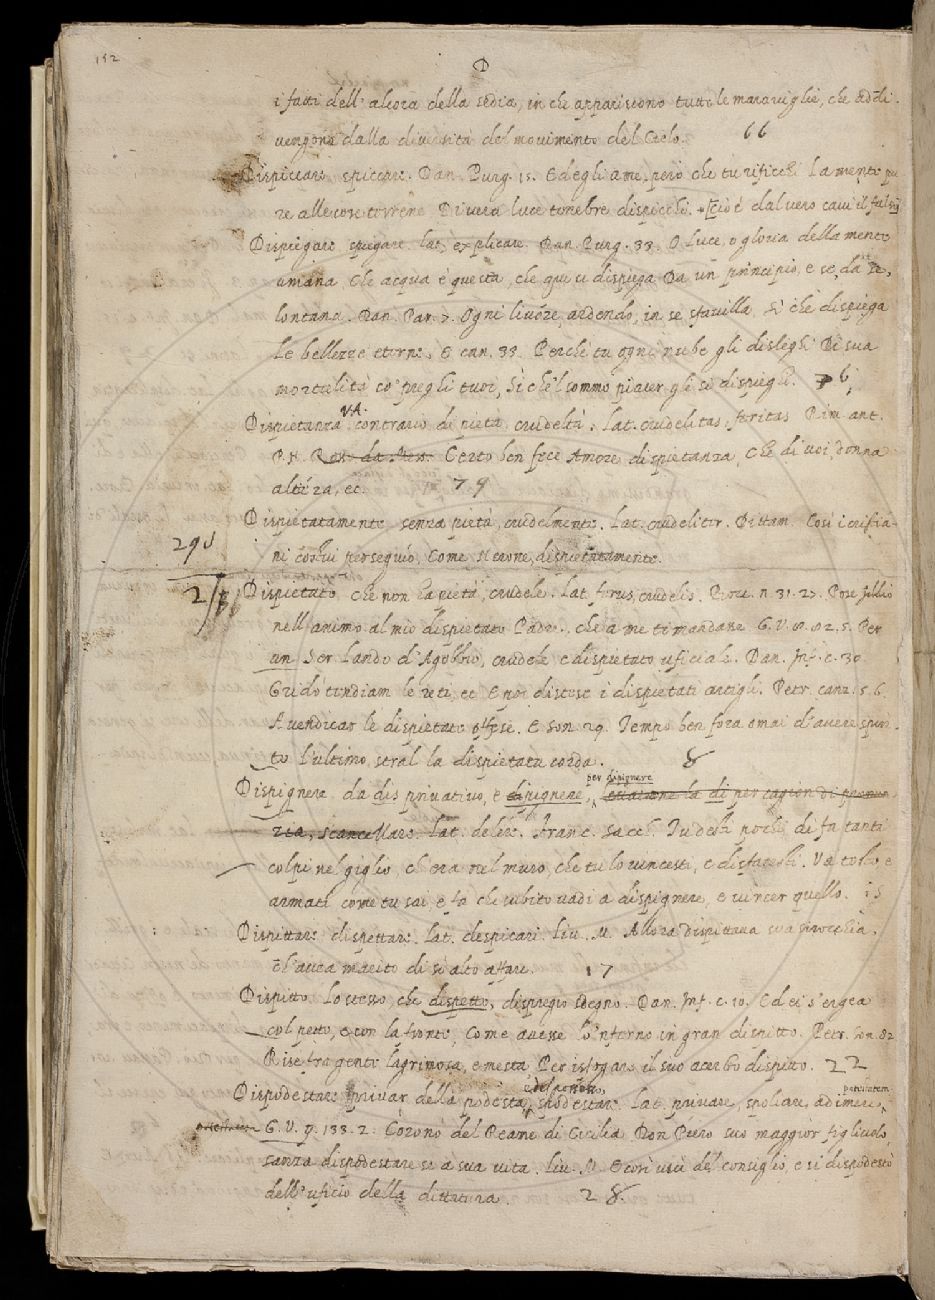 152
D
i fatti dell'altezza della sedia, in che appariscono tutte le maraviglie, che
vengono dalla diversità del movimento del Cielo. 66
Dispiccare spiccare. Dan. Purg. 15. Ed egli a me, però che tu rificchi La mente pu
re alle cose terrene Di vera luce tenebre dispicchi. cioè dal vero cavi il falso
Dispiegare spiegare lat. explicare. Dan. Purg. 33. O luce, o gloria della mente
umana, Che acqua è questa, che qui si dispiega Da un principio, e se, da se,
lontana. Dan. Par. 7. Ogni livore, ardendo, in se sfavilla, sì che dispiega
Le bellezze eterne, E can. 33. Perchè tu ogni nube gli disleghi Di sua
mortalità co' preghi tuoi, Sì che'l sommo piacer gli si dispieghi. 76
Dispietanza V.A. contrario di pietà, crudeltà. Lat. crudelitas, feritas Rim. ant.
P.N. Certo ben fece Amore dispietanza, Che di voi, donna
altera, ec. 79
Dispietatamente senza pietà, crudelmente. Lat. crudeliter. Dittam. Così i cristia-
ni costui perseguío, Come Nerone, dispietatamente.
290
2
Dispietato che non ha pietà, crudele. Lat. ferus, crudelis. Bocc. n. 31. 27. Pose
nell'animo al mio dispietato Padre, che a me ti mandasse G.V. 10. 82. 5. Per
un Ser Lando d'Agobbio, crudele e dispietato uficiale. Dan. Inf. c. 30
Gridò tendiam le reti, ec E poi distese i dispietati artigli. Petr. canz. 5. 6.
A vendicar le dispietate offese. E son. 29. Tempo ben fora omai d'avere spin-
to L'ultimo stral la dispietata corda. 8
Dispignere da dis privativo, e dipignere, per dipignere levatane la di per cagion di pronun
zia, scancellare. Lat. delere. Franc. Sacch. Tu desti pochi dì fa tanti
colpi nel giglio, ch'era nel muro, che tu lo vincesti, e disfacesti. Va tosto e
armati come tu sai, e fa che subito vadi a dispignere, e vincer quello. 15
Dispittare dispettare. Lat. despicari. Liv. M. Allora dispittava sua sirocchia,
ch'avea marito di sì alto affare. 17
Dispitto. Lo stesso, che dispetto, dispregio sdegno. Dan. Inf. c. 10. Ed ei s'ergea
col petto, e con la fronte, Come avesse lo'nferno in gran dispitto. Petr. son. 82
Rise fra gente lagrimosa, e mesta, Per isfogare il suo acerbo dispitto. 22
Dispodestare privar della podestà, spodestare. Lat. privare, spoliare, adimere
G.V. 9. 133. 2. Coronò del Reame di Cicilia Don Piero suo maggior figliuolo,
sanza dispodestare se a sua vita. Liv. M. E così uscì del consiglio, e si dispodestò
dell'uficio della dittatura. 28.